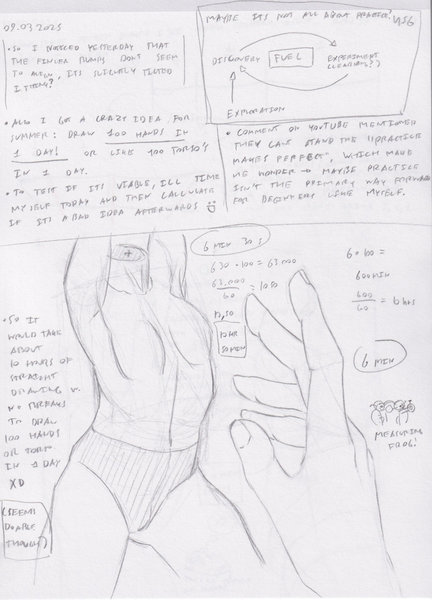 09.03.2025
• SO I NOTICED YESTERDAY THAT
THE FINGER BUMPS DON'T SEEM
TO ALIGN, ITS SLIGHTLY TILTED
I THINK?
• ALSO I GOT A CRAZY IDEA FOR
SUMMER: DRAW 100 HANDS IN
1 DAY! OR LIKE 100 TORSO'S
IN 1 DAY.
• TO TEST IF ITS VIABLE, ILL TIME
MYSELF TODAY AND THEN CALCULATE
IF ITS A BAD IDEA AFTERWARDS
MAYBE ITS NOT ALL ABOUT PRACTICE?
DISCOVERY
FUEL
EXPERIMENT
(LEARNING?)
EXPLORATION
• COMMENT ON YOUTUBE MENTIONED
THEY CAN'T STAND THE "PRACTICE
MAKES PERFECT", WHICH MADE
ME WONDER → MAYBE PRACTICE
ISN'T THE PRIMARY WAY FORWARD
FOR BEGINNERS LIKE MYSELF.
6 MIN 30 S
630 · 100 = 63 000
63,000
60
= 1050
10,50
10 HR
50 MIN
6 · 100 =
600 MIN
600
60
= 10 HRS
6 MIN
MEASURING
FROG!
• SO IT
WOULD TAKE
ABOUT
10 HOURS OF
STRAIGHT
DRAWING W.
NO BREAKS
TO DRAW
100 HANDS
OR TORSO
IN 1 DAY
XD
(SEEMS
DOABLE
THOUGH)